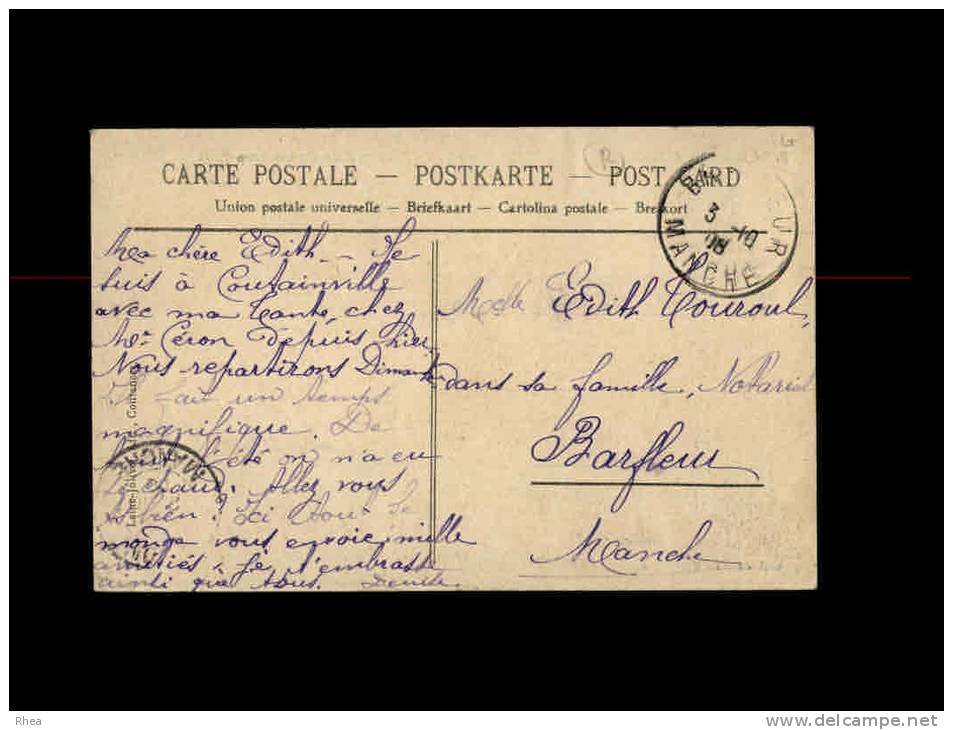 CARTE POSTALE — POSTKARTE — POST CARD
Union postale universelle — Briefkaart — Cartolina postale — Brefkort
3 -10
08
MANCHE
Ma chère Edith — Je
suis à Coutainville
avec ma tante, chez
Mr Céron depuis hier.
Nous repartirons Dimanche
Il fait un temps
magnifique. De
tout l'été on n'a eu
si chaud. Allez vous
bien? Ici tout le
monde vous envoie mille
amitiés. Je t'embrasse
ainsi que tous. Denise.
Melle Edith Touroul,
dans sa famille, Notariat
Barfleur
Manche
Rhea
www.delcampe.net